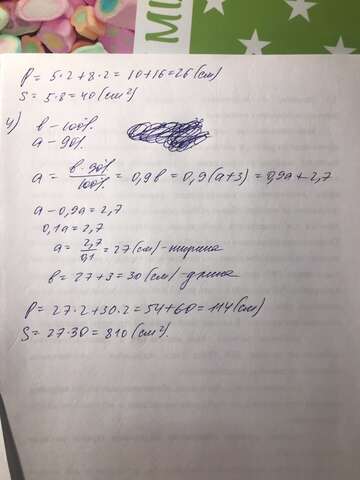 MI
P = 5·2+8·2 = 10+16=26 (см)
S = 5·8=40 (см²)
4) b – 100%.
a – 90%.
a = b·90%/100% = 0,9b = 0,9(a+3) = 0,9a+2,7
a – 0,9a = 2,7
0,1a = 2,7
a = 2,7/0,1 = 27 (см) – ширина
b = 27+3 = 30 (см) – длина
P = 27·2+30·2 = 54+60 = 114 (см)
S = 27·30 = 810 (см²).